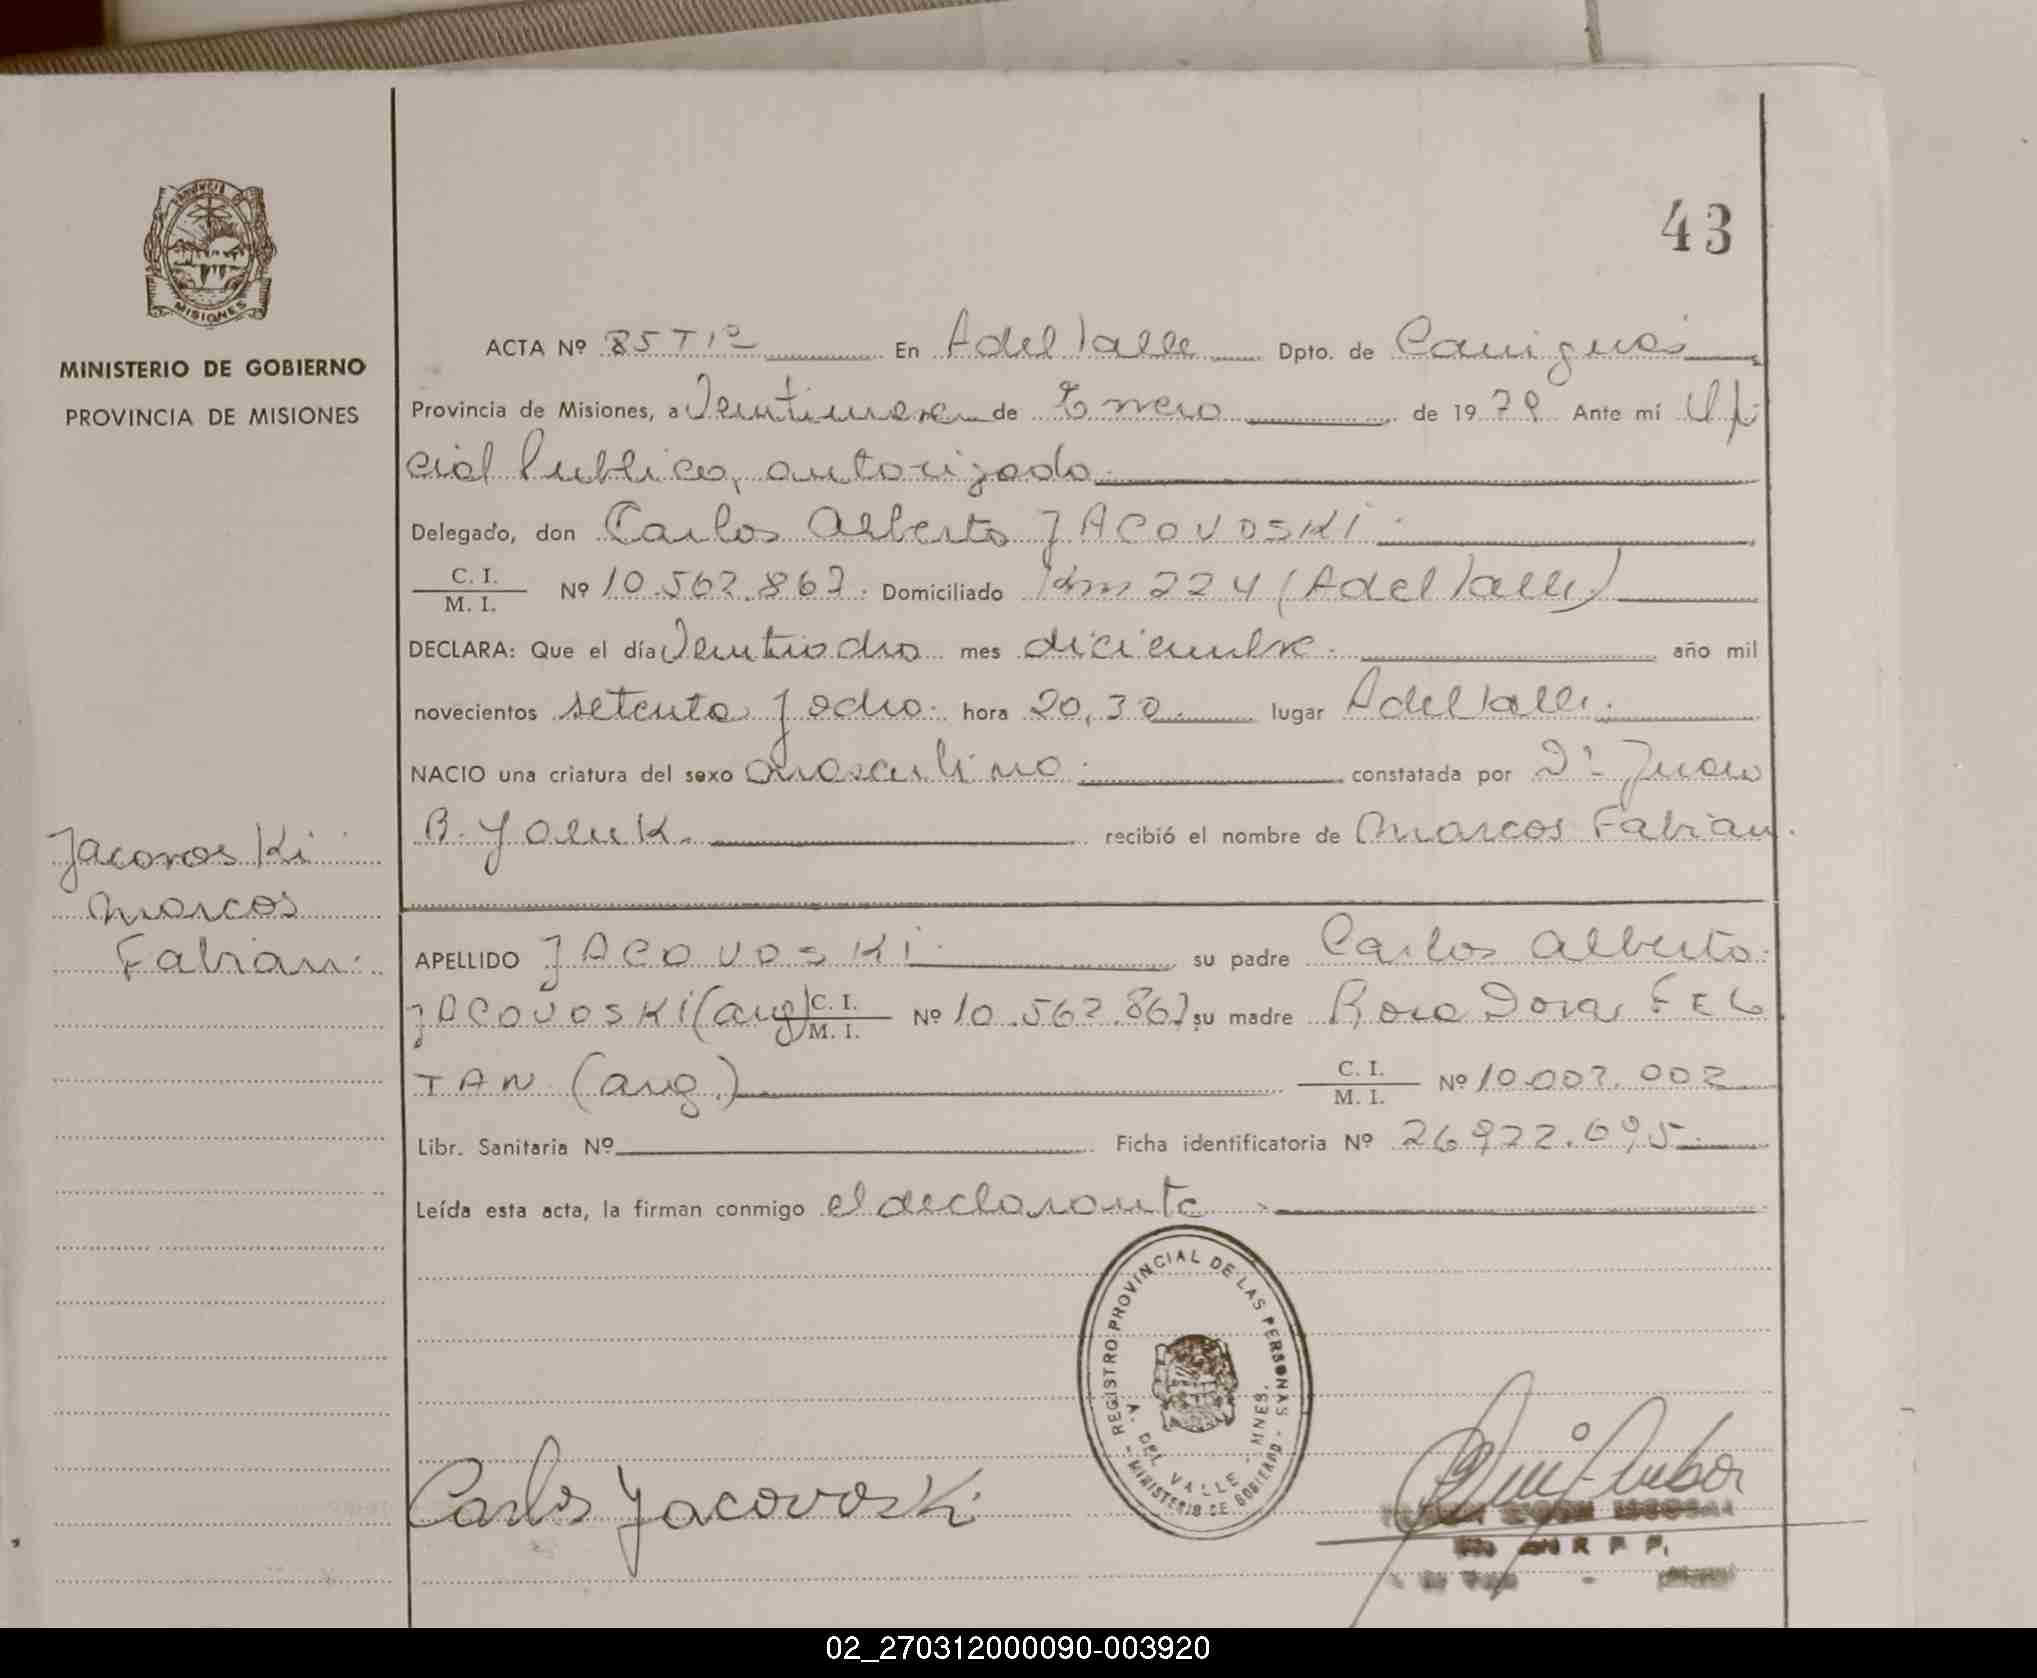 43
MINISTERIO DE GOBIERNO
PROVINCIA DE MISIONES
MISIONES
ACTA Nº 85 T 1º En A del Valle Dpto. de Cainguás
Provincia de Misiones, a Ventinueve de Enero de 1979 Ante mí Ofi
cial Publico, autorizado
Delegado, don Carlos Alberto JACOVOSKI
C. I.
M. I. Nº 10.562.867. Domiciliado Km 224 (A del Valle)
DECLARA: Que el día Ventiocho mes diciembre. año mil
novecientos setenta y ocho. hora 20,30. lugar A del Valle.
NACIO una criatura del sexo masculino. constatada por Juan
B. recibió el nombre de Marcos Fabian.
Jacovoski
Marcos
Fabian.
APELLIDO JACOVOSKI su padre Carlos Alberto
JACOVOSKI (arg) C. I. M. I. Nº 10.562.867 su madre Rosa Dora FEL
TAN (arg.) C. I. M. I. Nº 10.002.002
Libr. Sanitaria Nº Ficha identificatoria Nº 26922.695
Leída esta acta, la firman conmigo el declarante
REGISTRO PROVINCIAL DE LAS PERSONAS
A. DEL VALLE - MNES.
- MINISTERIO DE GOBIERNO -
Carlos Jacovoski
02_270312000090-003920